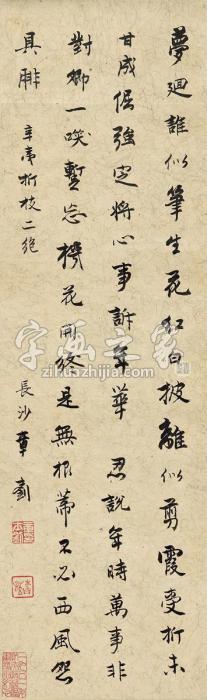 夢廻誰似筆生花紅白披離似剪霞受折未
甘成倔強定將心事訴年華 忍說年時萬事非
對卿一咲暫忘機花開終是無根蒂不必西風怨
具腓
辛亥折枝二絕
長沙章
字画之家
zihuazhijia.com